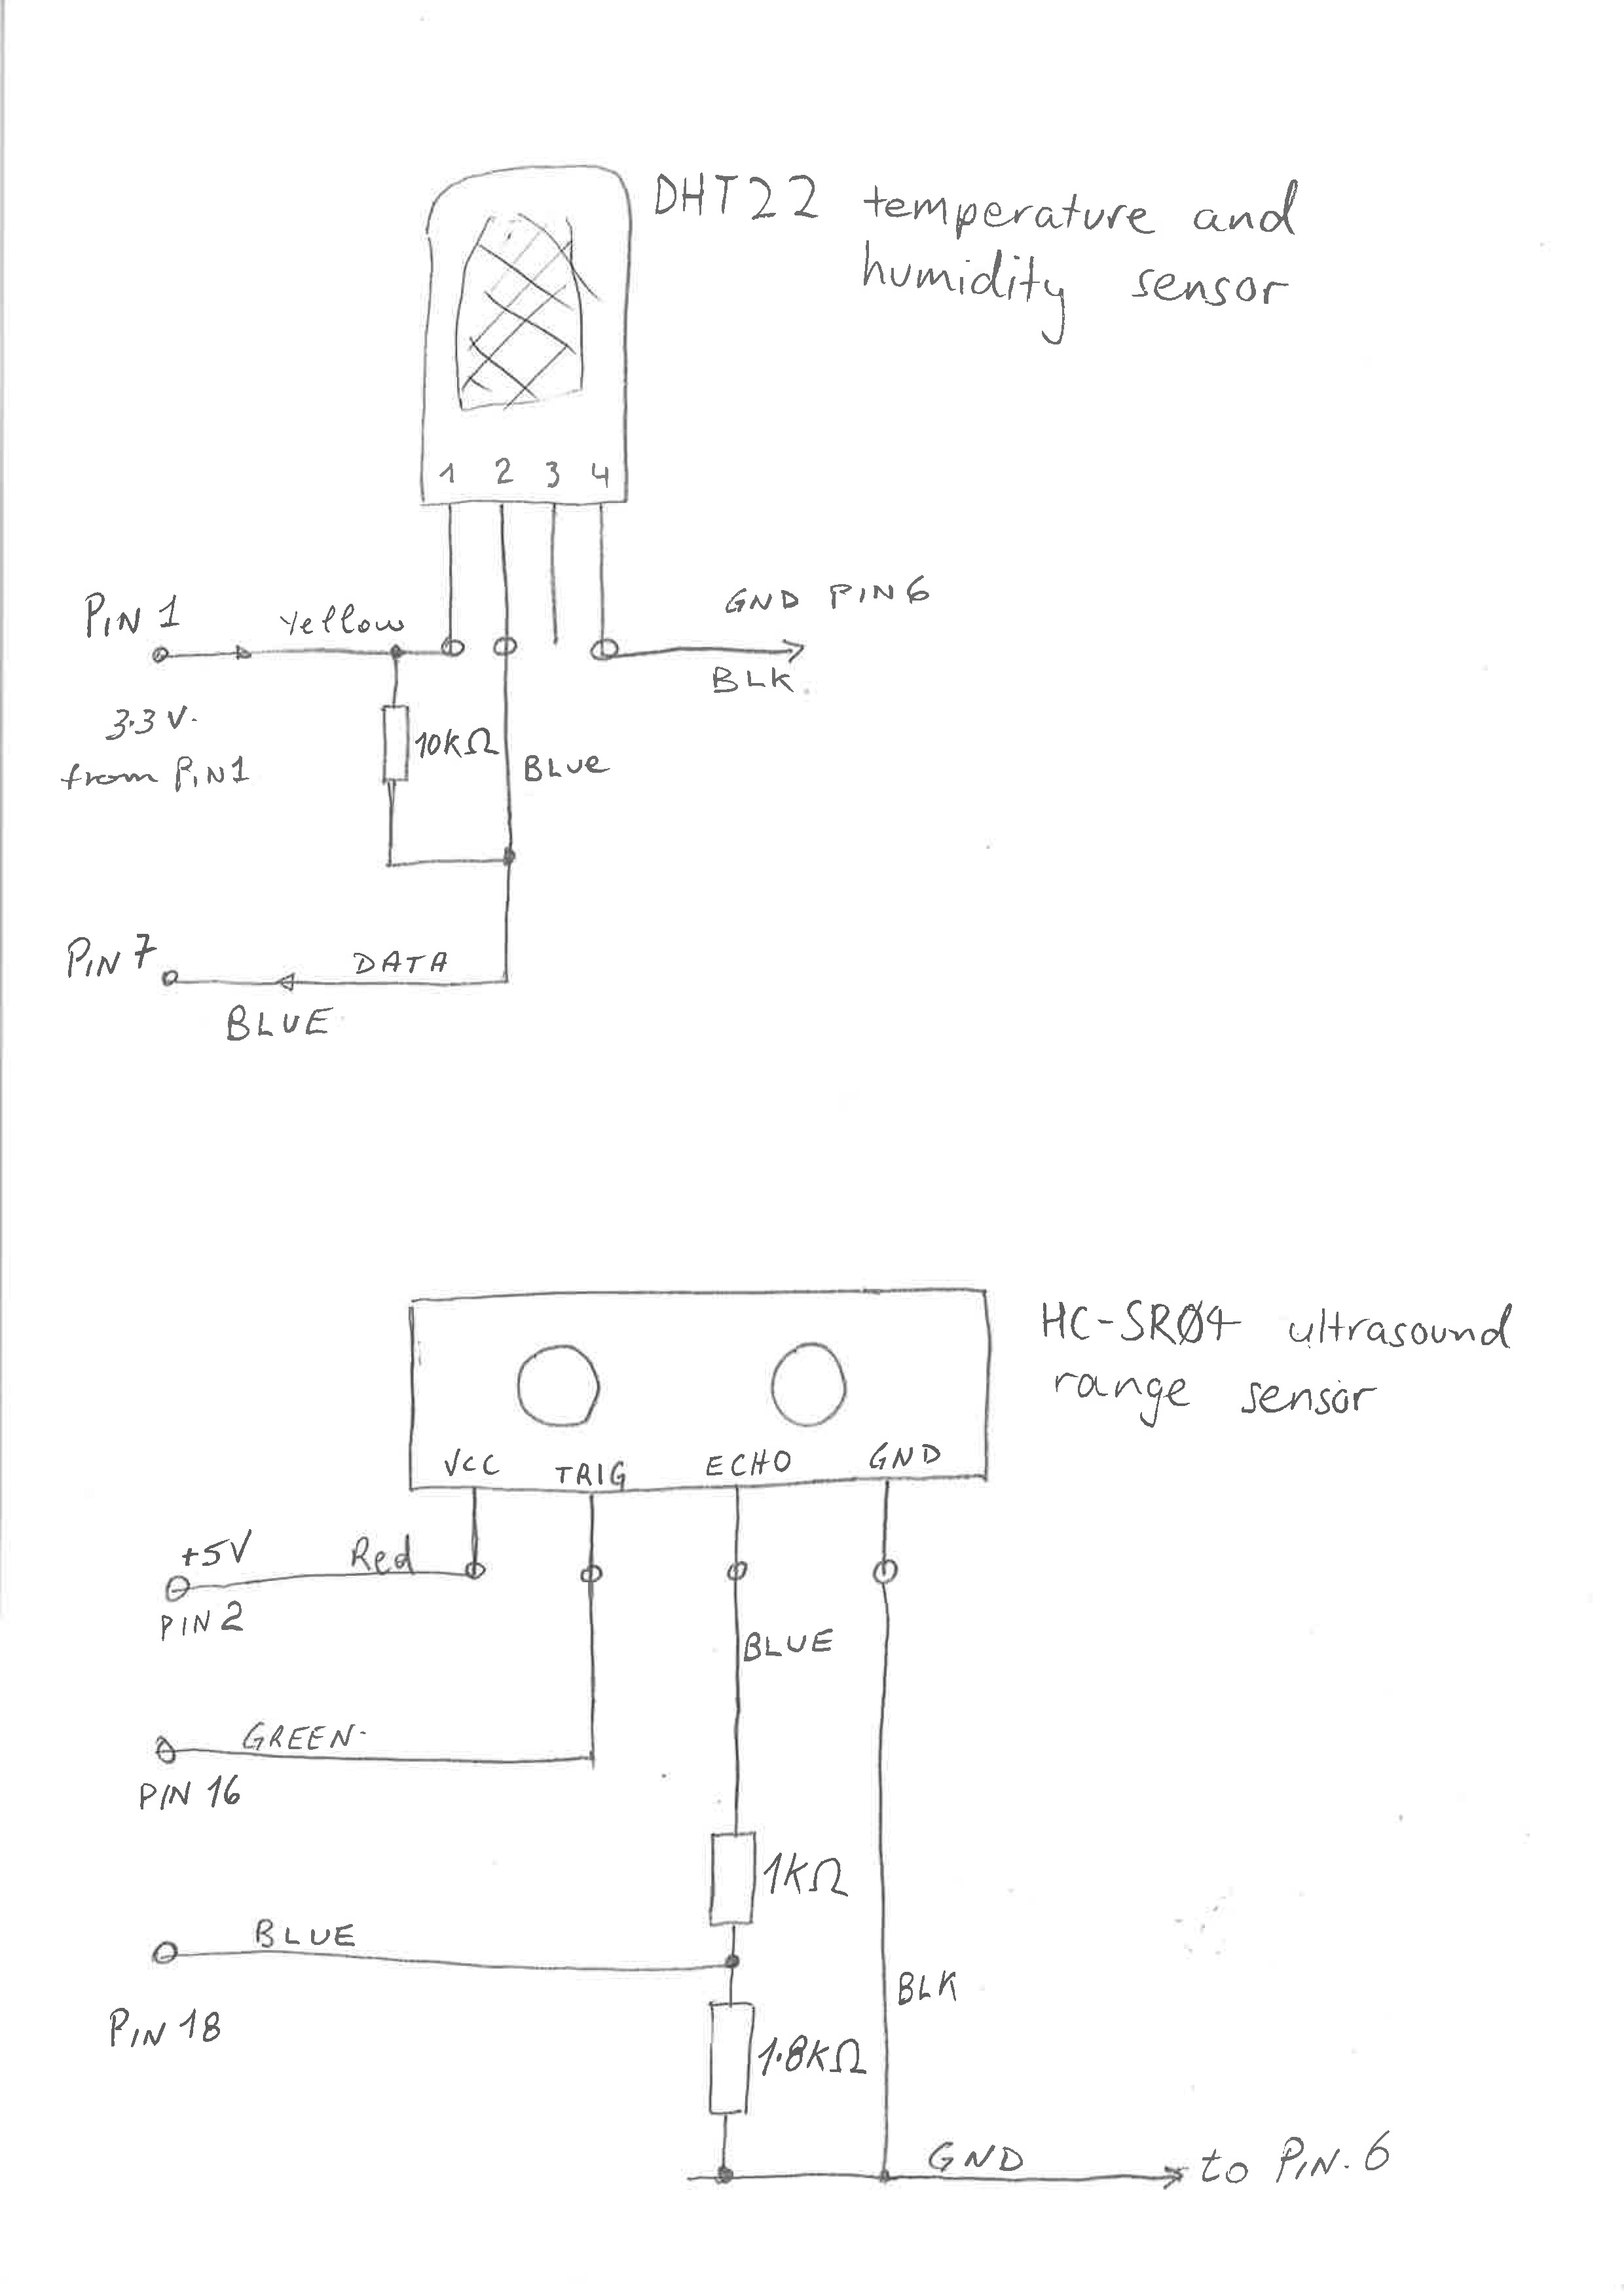 DHT22 temperature and
humidity sensor
1 2 3 4
PIN 1
Yellow
GND PIN6
BLK
3.3 V.
from PIN1
10kΩ
BLUe
PIN 7
DATA
BLUE
HC-SRØ4 ultrasound
range sensor
VCC TRIG ECHO GND
+5V
Red
PIN 2
BLUE
GREEN
PIN 16
1kΩ
BLUE
PIN 18
BLK
1.8kΩ
GND
to PIN. 6